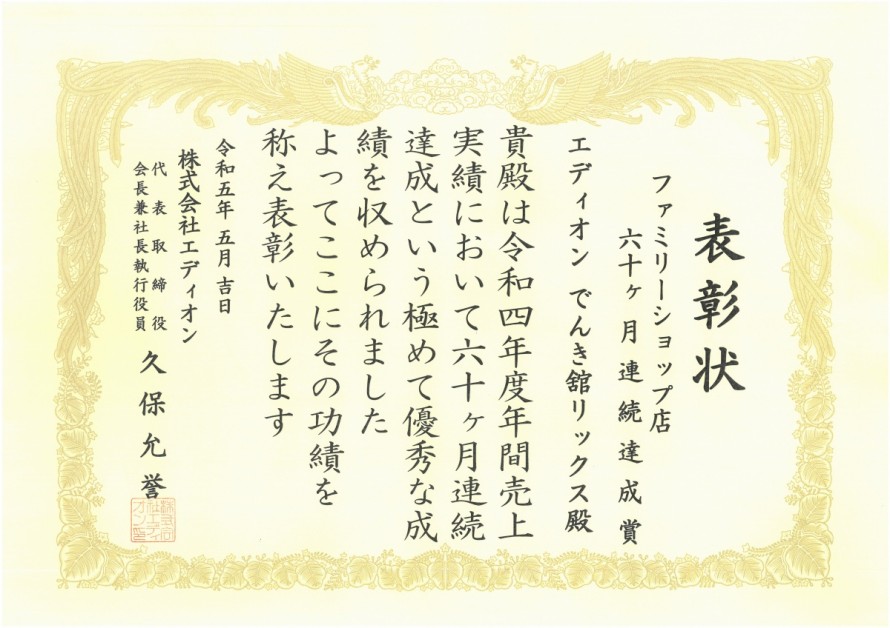 表彰状
ファミリーショップ店
六十ヶ月連続達成賞
エディオン でんき舘リックス殿
貴殿は令和四年度年間売上
実績において六十ヶ月連続
達成という極めて優秀な成
績を収められました
よってここにその功績を
称え表彰いたします
令和五年 五月 吉日
株式会社エディオン
代表取締役
会長兼社長執行役員
久保允誉
株式会
社エディ
オン